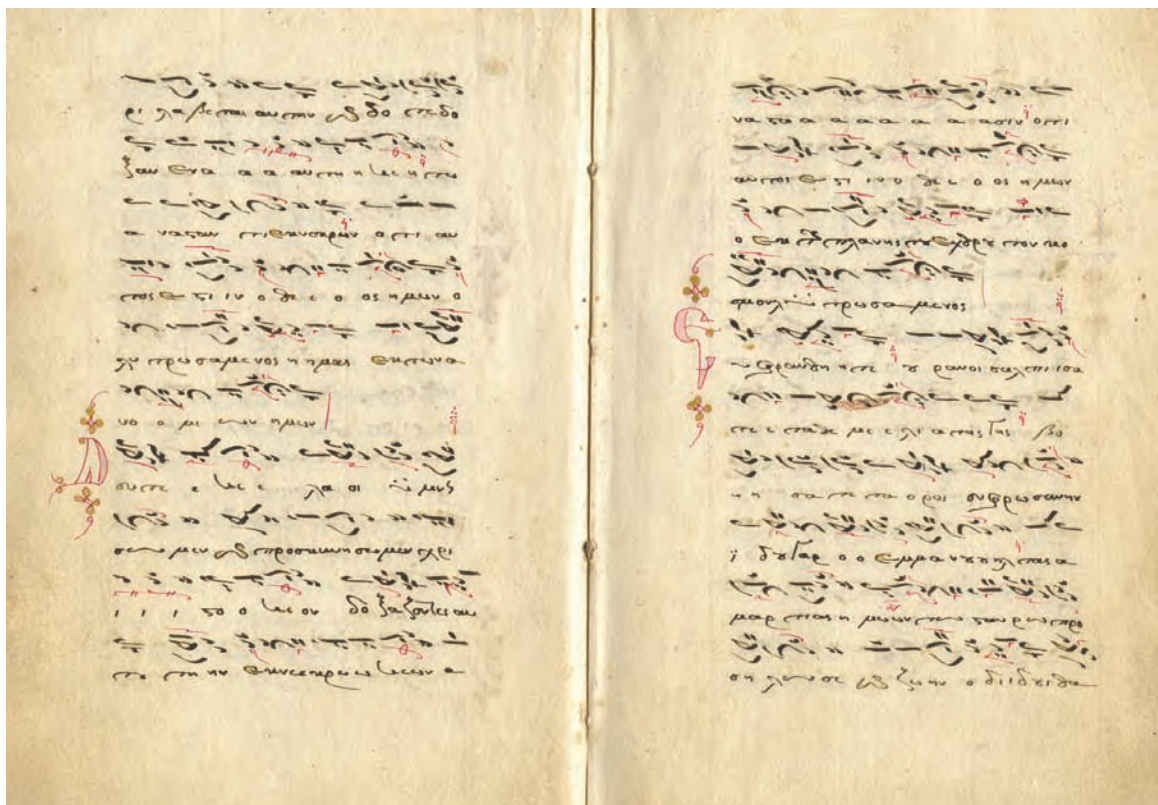 ρι λα βεται αυ την ϗ δο τε δο
ξαν εν α α αυ τη η κε η τω
α να των εκ νεκρων ο τι αυ
τος ε στι ι ν ο θε ε ο ος η μων ο
λυ τρωσαμενος η ημας εκ των α
νο ο μι ων ημων
Δ ευτε ε κε ε λα οι υ μνη
σω μεν ϗ προσκυνη σω μεν χρι
ι ι ι στο ο κε ον δο ξα ζοντες αυ
του τη ην εκ νεκρω ω κε ων α
να στα α α α α α ασιν ο τι
αυτος ε στι ι ν ο θε ε ο ος η μων
ο εκ της πλανης του εχθρου τον κο
σμον λυ τρωσα μενος
Ε υφρανθη η τε ου ρανοι σαλπι σα
τε ε τα θε με ε λι α της γης βο
η η σα τε τα ο ροι ευφρωσανην
ι δου γαρ ο ο εμμα νουηλ τας α
μαρ τιας η μωων τω σταυ ρω προ
ση λωσε ϗ ζωην ο διδους θα